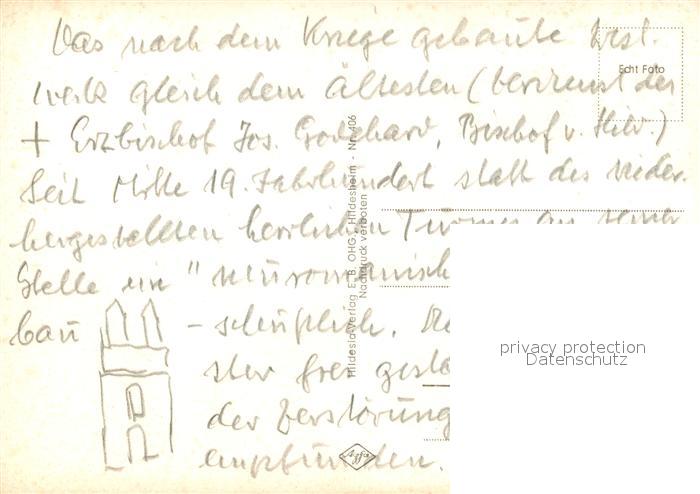 Das nach dem Kriege gebaute West-
werk gleich dem ältesten (Verdienst des
+ Erzbischof Jos. Godehard, Bischof v. Hild.)
Seit Mitte 19. Jahrhundert statt des wieder-
hergestellten herrlichen an
Stelle ein "neuromanisch
bau - scheußlich.
ster frei
der Zerstörung
empfunden.
Echt Foto
Hildesia-Verlag E. B. OHG., Hildesheim - Nr. 406
Nachdruck verboten
Agfa
privacy protection
Datenschutz